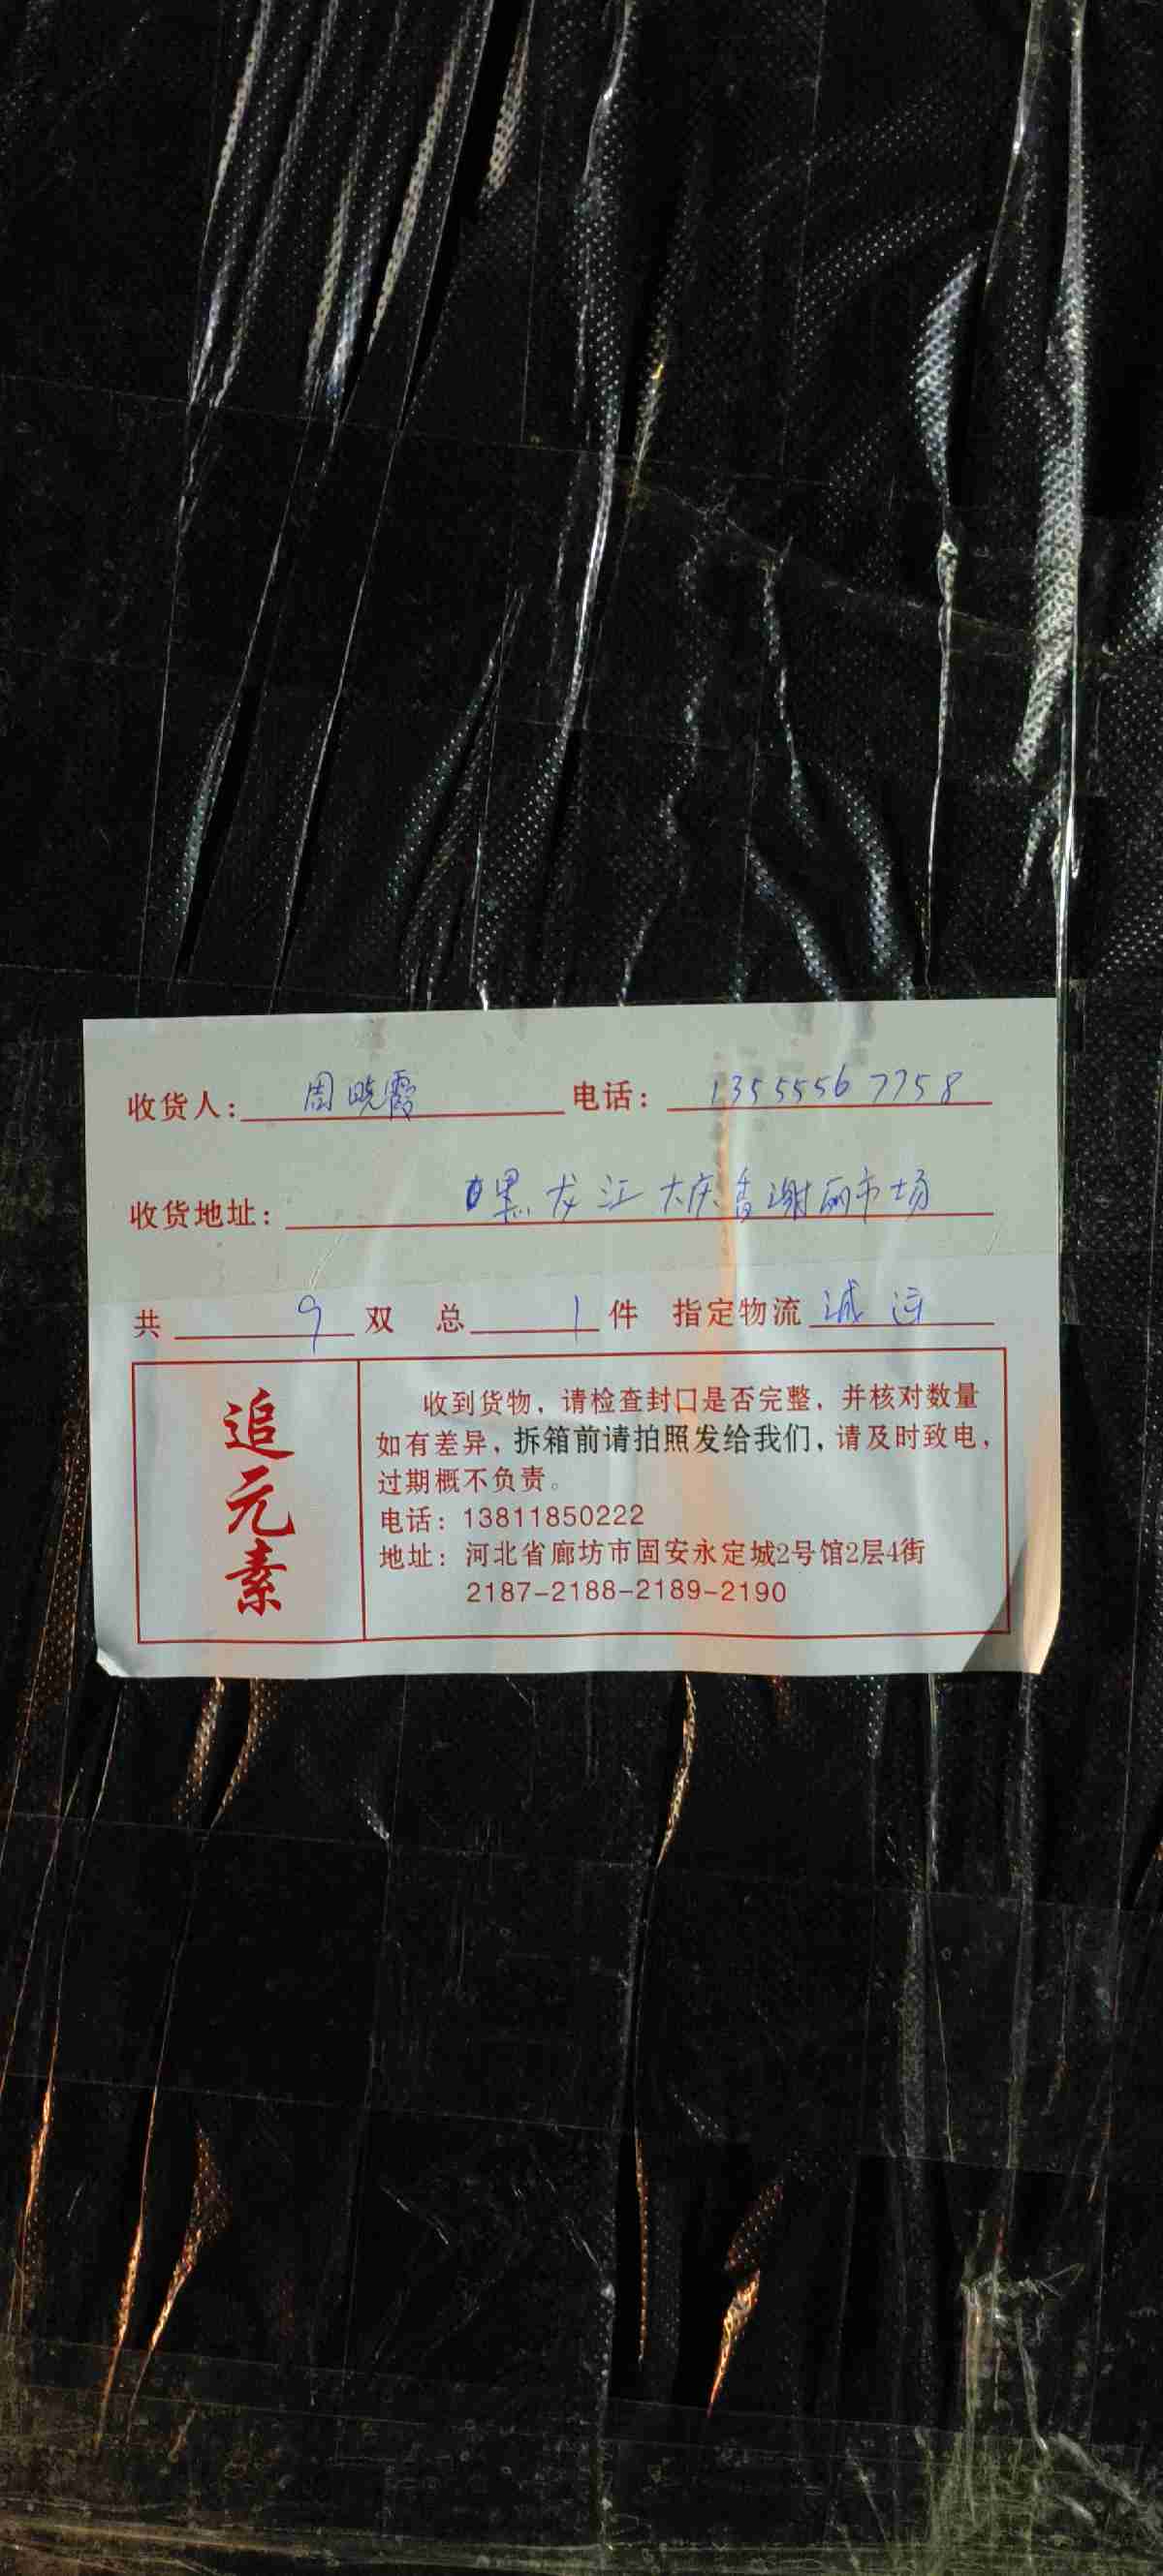 收货人: 周晓霞 电话: 13555567758
收货地址: 黑龙江大庆香谢丽市场
共 9 双 总 1 件 指定物流 诚运
追元素
收到货物，请检查封口是否完整，并核对数量
如有差异，拆箱前请拍照发给我们，请及时致电，
过期概不负责。
电话：13811850222
地址：河北省廊坊市固安永定城2号馆2层4街
2187-2188-2189-2190